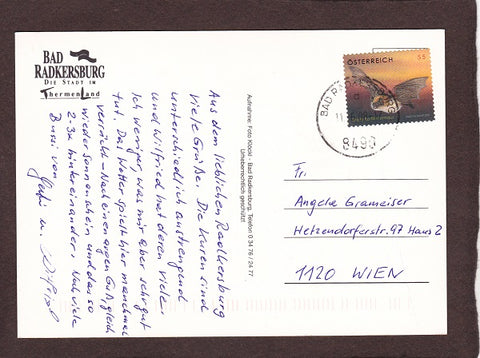 BAD
RADKERSBURG
DIE STADT IM
ThermenLand
Aus dem lieblichen Radkersburg
viele Grüße. Die Kuren sind
unterschiedlich anstrengend
und Wilfried hat deren viele,
ich weniger, was mir aber sehr gut
tut. Das Wetter spielt hier manchmal
verrückt - Nach einem argen Guß, gleich
wieder Sonnenschein und das so
2-3x hintereinander. Noch viele
Bussi von
Gabi u. Wilfried
Aufnahme: Foto Köckl - Bad Radkersburg, Telefon 0 34 76 / 24 77
Urheberrechtlich geschützt!
ÖSTERREICH
55
BAD RADK
8490
Fr.
Angela Grameiser
Hetzendorferstr. 97 Haus 2
1120 WIEN